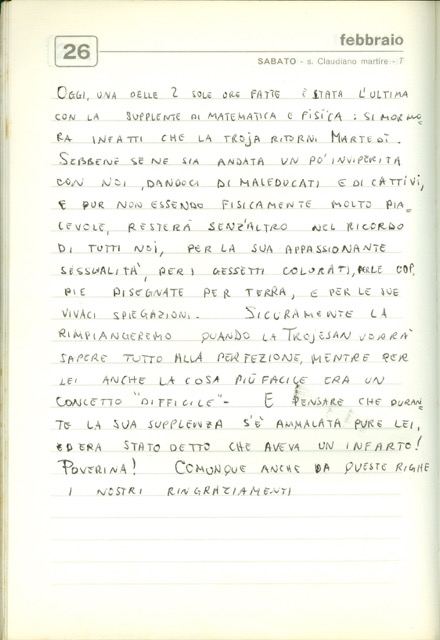 febbraio
26
SABATO - s. Claudiano martire - 7
OGGI, UNA DELLE 2 SOLE ORE FATTE È STATA L'ULTIMA
CON LA SUPPLENTE DI MATEMATICA E FISICA: SI MORMO=
RA INFATTI CHE LA TROJA RITORNI MARTEDÌ.
SEBBENE SE NE SIA ANDATA UN PO' INVIPERITA
CON NOI, DANDOCI DI MALEDUCATI E DI CATTIVI,
E PUR NON ESSENDO FISICAMENTE MOLTO PIA=
CEVOLE, RESTERÀ SENZ'ALTRO NEL RICORDO
DI TUTTI NOI, PER LA SUA APPASSIONANTE
SESSUALITÀ, PER I GESSETTI COLORATI, PER LE COP=
PIE DISEGNATE PER TERRA, E PER LE SUE
VIVACI SPIEGAZIONI. SICURAMENTE LA
RIMPIANGEREMO QUANDO LA TROJESAN VORRÀ
SAPERE TUTTO ALLA PERFEZIONE, MENTRE PER
LEI ANCHE LA COSA PIÙ FACILE ERA UN
CONCETTO "DIFFICILE"- E PENSARE CHE DURAN=
TE LA SUA SUPPLENZA S'È AMMALATA PURE LEI,
ED ERA STATO DETTO CHE AVEVA UN INFARTO!
POVERINA! COMUNQUE ANCHE DA QUESTE RIGHE
I NOSTRI RINGRAZIAMENTI